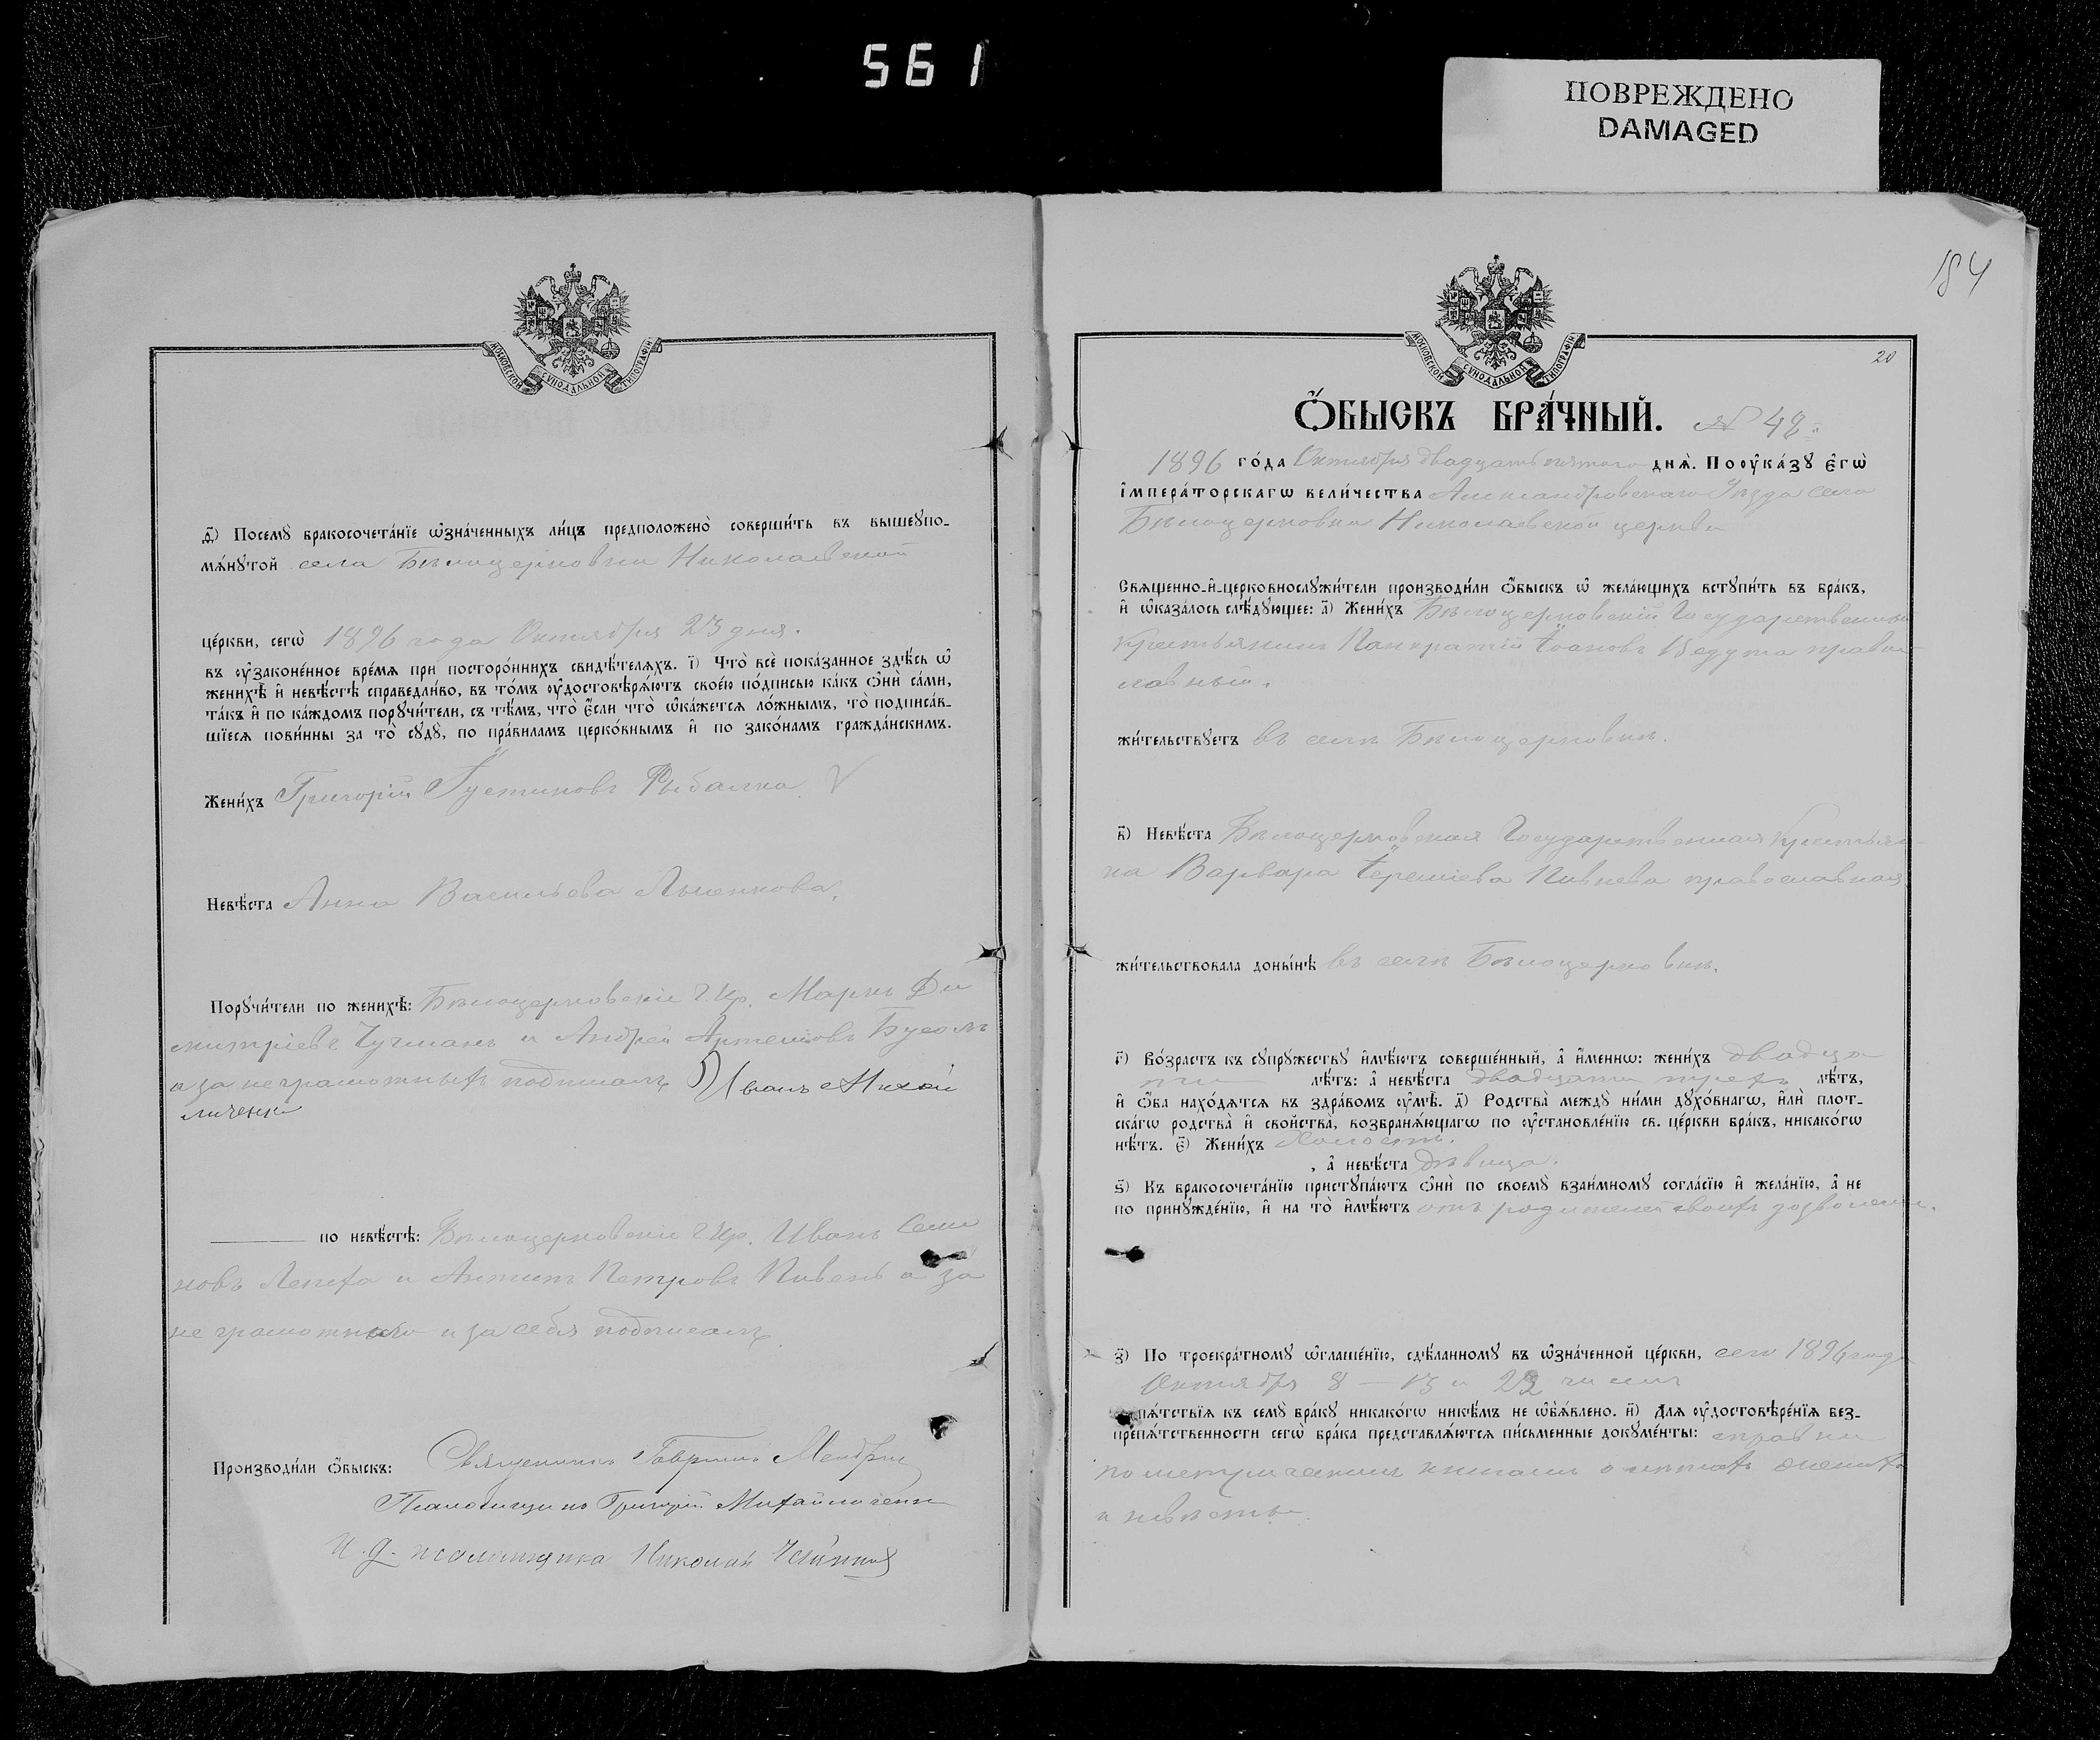 561
ПОВРЕЖДЕНО
DAMAGED
МОСКОВСКОЙ СѴНОДАЛЬНОЙ ТИПОГРАФІИ
д҃) Посемꙋ̀ бракосочета́нїе ѡ҆зна́ченныхъ ли́цъ предположено̀ соверши́ть въ вышеꙋпо-
мѧ́нꙋтой села Бѣлоцерковки Николаевской
це́ркви, сегѡ̀ 1896 года Октября 23 дня.
въ ᲂу҆зако́ненное вре́мѧ при посторо́ннихъ свидѣ́телѧхъ. і҃) Что̀ всѐ пока́занное здѣ́сь ѡ҆
женихѣ̀ и҆ невѣ́стѣ справедли́во, въ то́мъ ᲂу҆достовѣрѧ́ютъ свое́ю по́дписью ка́къ ѻ҆нѝ са́ми,
та́къ и҆ по ка́ждомъ порꙋчи́тели, съ тѣ́мъ, что̀ є҆́сли что̀ ѡ҆ка́жетсѧ ло́жнымъ, то̀ подписа́в-
шїесѧ пови́нны за то̀ сꙋдꙋ̀, по пра́виламъ церко́внымъ и҆ по зако́намъ гражда́нскимъ.
Жени́хъ Григорій Іустиновъ Рыбалка
Невѣ́ста Анна Васильева Лысенкова.
Порꙋчи́тели по женихѣ̀: Бѣлоцерковскіе Г. Кр. Маркъ Ди
митріевъ Чучманъ и Андрей Артемовъ
а за неграмотныхъ подписалъ Иванъ Михай
личенко
по невѣ́стѣ: Бѣлоцерковскіе Г. Кр. Иванъ Семе
новъ Лепеха и Антипъ Петровъ Пивень а за
не грамотнаго и за себя подписалъ
Производи́ли ѻ҆́быскъ: Священникъ Гавріилъ
Псаломщикъ Григорій Михайличенко
И. д. псаломщика Николай
184
МОСКОВСКОЙ СѴНОДАЛЬНОЙ ТИПОГРАФІИ
20
Ѻ҆́БЫСКЪ БРА́ЧНЫЙ. № 42.
1896 го́да Октября двадцать пятаго днѧ̀. По ᲂу҆ка́зꙋ є҆гѡ̀
і҆мпера́торскагѡ вели́чества Александровскаго Уѣзда села
Бѣлоцерковки Николаевской церкви
Свѧще́нно-и҆-церковнослꙋжи́тели производи́ли ѻ҆́быскъ ѡ҆ жела́ющихъ встꙋпи́ть въ бра́къ,
и҆ ѡ҆каза́лось слѣ́дꙋющее: а҃) Жени́хъ Бѣлоцерковскій Государственный
крестьянинъ Панкратій Іоановъ Кедута право-
славный.
жи́тельствꙋетъ въ селѣ Бѣлоцерковкѣ.
в҃) Невѣ́ста Бѣлоцерковская Государственная крестьян-
ка Варвара Іереміева Пивнева православная
жи́тельствовала доны́нѣ въ селѣ Бѣлоцерковкѣ.
г҃) Во́зрастъ къ сꙋпрꙋ́жествꙋ и҆мѣ́ютъ соверше́нный, а҆ и҆́меннѡ: жени́хъ двадца
ти лѣ́тъ: а҆ невѣ́ста двадцати трехъ лѣ́тъ,
и҆ ѻ҆́ба нахо́дѧтсѧ въ здра́вомъ ᲂу҆мѣ̀. д҃) Родства̀ междꙋ̀ ни́ми дꙋхо́внагѡ, и҆лѝ плот-
ска́гѡ родства̀ и҆ сво́йства, возбранѧ́ющагѡ по ᲂу҆становле́нїю св. це́ркви бра́къ, никако́гѡ
нѣ́тъ. є҃) Жени́хъ Холостъ.
, а҆ невѣ́ста дѣвица.
ѕ҃) Къ бракосочета́нїю пристꙋпа́ютъ ѻ҆нѝ по своемꙋ̀ взаи́мномꙋ согла́сїю и҆ жела́нїю, а҆ не
по принꙋжде́нїю, и҆ на то̀ и҆мѣ́ютъ отъ родителей своихъ дозволеніе.
з҃) По троекра́тномꙋ ѡ҆глаше́нїю, сдѣ́ланномꙋ въ ѡ҆зна́ченной це́ркви, сего 1896 года
Октября 8 – 13 и 22 чиселъ
пѧ́тствїѧ къ семꙋ̀ бра́кꙋ никако́гѡ никѣ́мъ не ѡ҆б̾ѧ́влено. и҃) Длѧ ᲂу҆достовѣре́нїѧ без-
препѧ́тственности сегѡ̀ бра́ка представлѧ́ютсѧ пи́сьменные докꙋме́нты: справки
по метрическимъ книгамъ о лѣтахъ жениха
и невѣсты.